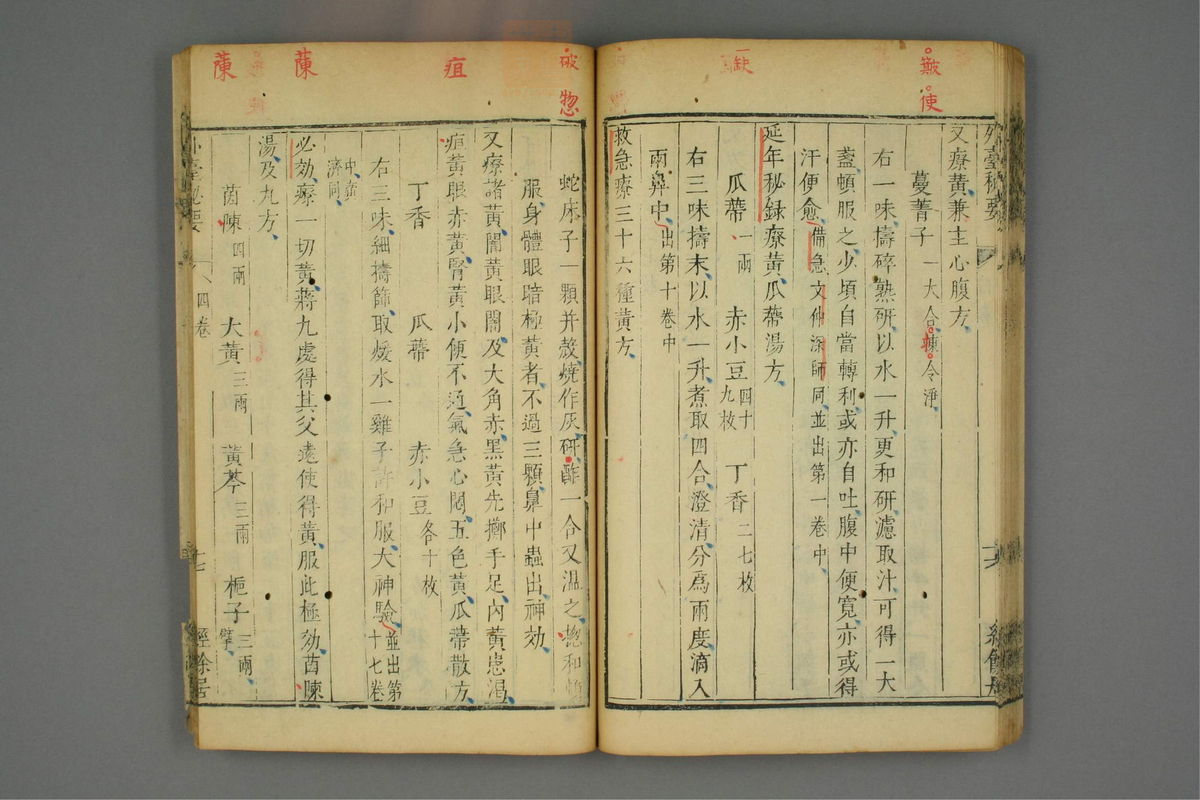 皺使
缺
外臺秘要
又療黃兼主心腹方
蔓菁子一大合揀令淨
右一味擣碎熟研以水一升更和研濾取汁可得一大
盞頓服之少頃自當轉利或亦自吐腹中便寬亦或得
汗便愈備急文仲深師同並出第一卷中
延年秘録療黃瓜蔕湯方
瓜蔕一兩 赤小豆四十九枚 丁香二七枚
右三味擣末以水一升煮取四合澄清分爲兩度滴入
兩鼻中出第十卷中
救急療三十六種黃方
破惣
疸
蔯
蔯
蛇床子一顆并殼燒作灰研酢一合又温之惣和
服身體眼暗極黃者不過三顆鼻中蟲出神効
又療諸黃闇黃眼闇及大角赤黑黃先擲手足內黃患渴
疸黃眼赤黃腎黃小便不通氣急心悶五色黃瓜蔕散方
丁香 瓜蔕 赤小豆各十枚
右三味細擣篩取煖水一雞子許和服大神驗並出第十七卷
中廣濟同
必効療一切黃蔣九處得其父遠使得黃服此極効茵陳
湯及丸方
茵陳四兩 大黃三兩 黃芩三兩 梔子三兩擘
四卷
十七
經餘居